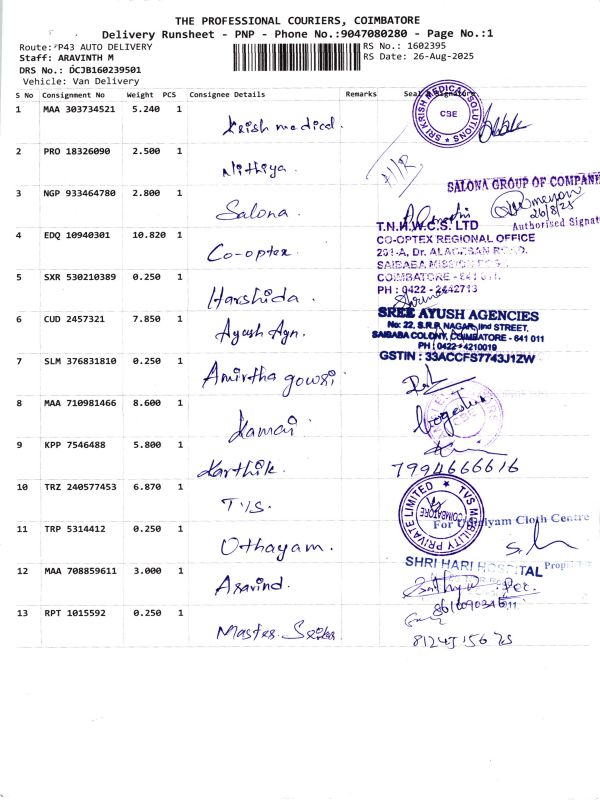 THE PROFESSIONAL COURIERS, COIMBATORE
Delivery Runsheet - PNP - Phone No.:9047080280 - Page No.:1
Route: P43 AUTO DELIVERY
RS No.: 1602395
Staff: ARAVINTH M
RS Date: 26-Aug-2025
DRS No.: DCJB160239501
Vehicle: Van Delivery
S No Consignment No Weight PCS Consignee Details Remarks Seal & Signature
1 MAA 303734521 5.240 1 Krish medical.
SRI KRISH MEDICAL SOLUTIONS CBE
2 PRO 18326090 2.500 1 Nithiya.
3 NGP 933464780 2.800 1 Salona.
SALONA GROUP OF COMPANI
26/8/25
Authorised Signat
4 EDQ 10940301 10.820 1 Co-optex.
T.N.H.W.C.S. LTD
CO-OPTEX REGIONAL OFFICE
201-A, Dr. ALAGESAN ROAD.
SAIBABA MISSION
COIMBATORE - 641 011.
PH : 0422 - 2442713
5 SXR 530210389 0.250 1 Harshida.
6 CUD 2457321 7.850 1 Ayush Agn.
SREE AYUSH AGENCIES
No: 22, S.R.P. NAGAR, IInd STREET,
SAIBABA COLONY, COIMBATORE - 641 011
PH : 0422 - 4210019
GSTIN : 33ACCFS7743J1ZW
7 SLM 376831810 0.250 1 Amirtha gowri
8 MAA 710981466 8.600 1 Kamai
9 KPP 7546488 5.800 1 Karthik.
7994666616
10 TRZ 240577453 6.870 1 TVS.
TVS MOBILITY PRIVATE LIMITED COIMBATORE
11 TRP 5314412 0.250 1 Othayam.
For Udaiyam Cloth Centre
12 MAA 708859611 3.000 1 Aravind.
SHRI HARI HOSPITAL
13 RPT 1015592 0.250 1 Master